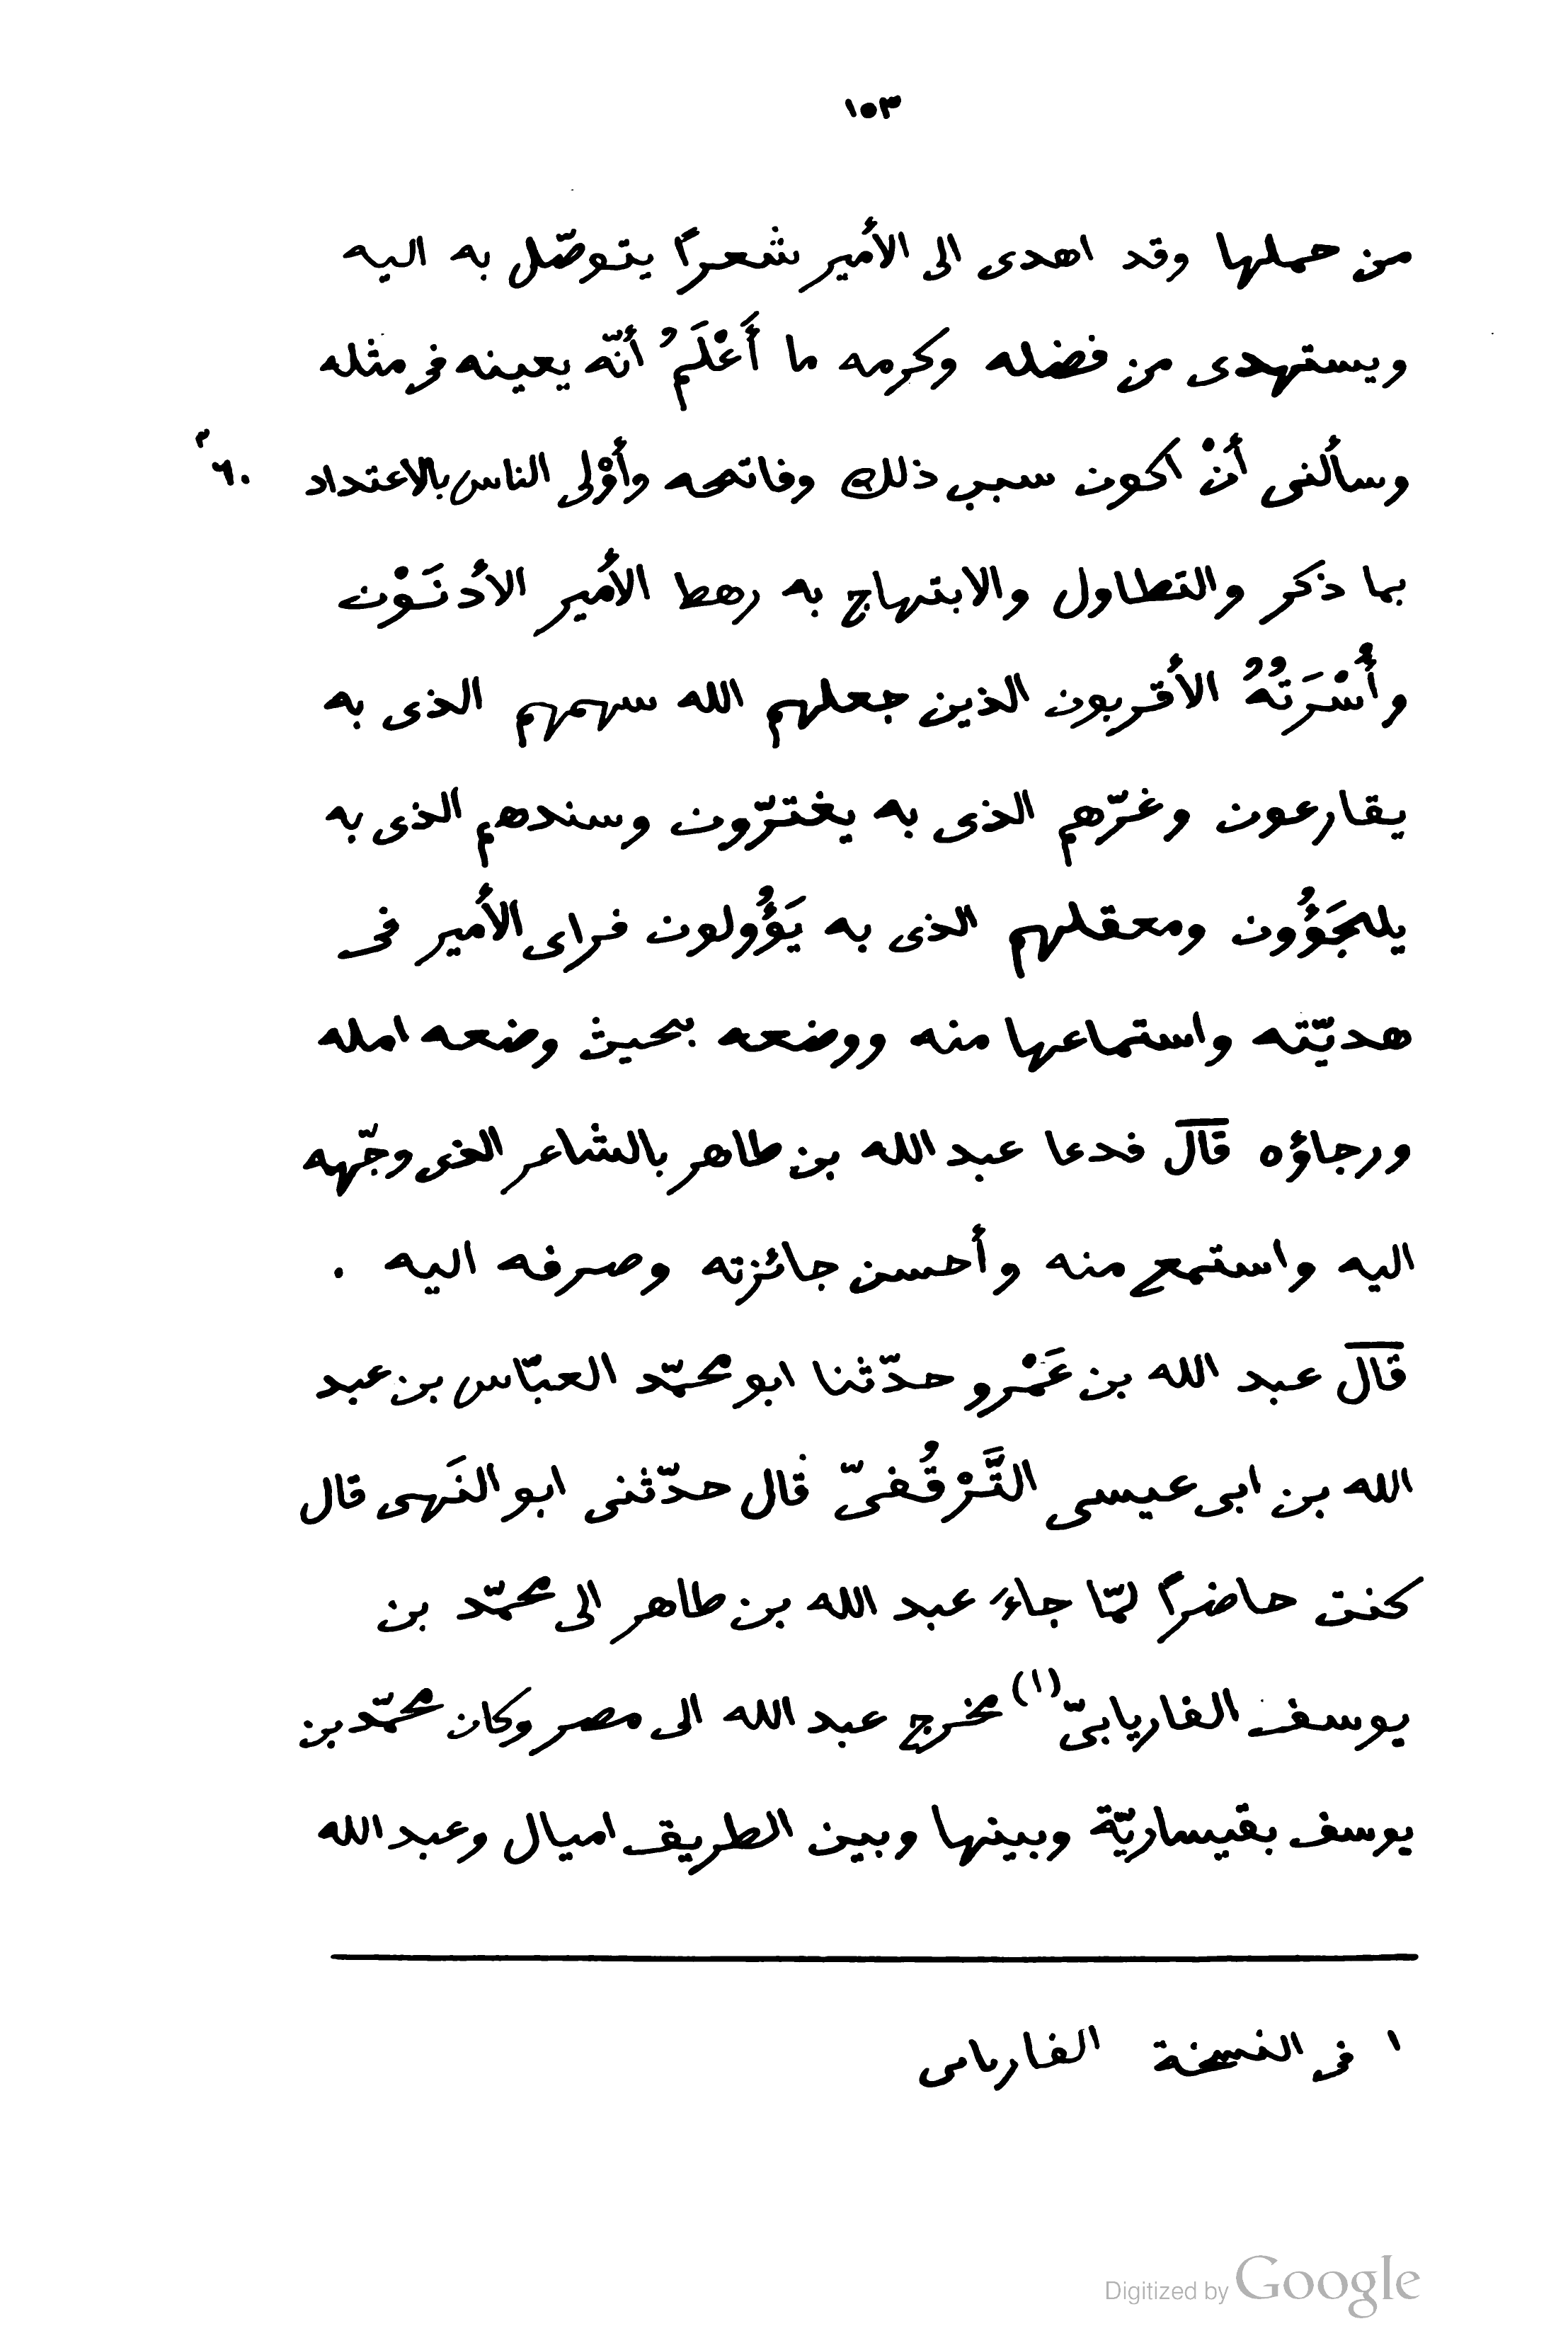 ١٥٣
من حملها وقد اهدى الى الأمير شعراً يتوصّل به اليه
ويستهدى من فضله وكرمه ما أَعْلَمُ أنّه يعينه فى مثله
وسألنى أنْ اكون سبب ذلك وفاتحه وأوْلى الناس بالاعتداد ٦٠٣
بما ذكر والتطاول والابتهاج به رهط الأمير الأدنَوْن
وأُسْرَتُهُ الأقربون الذين جعلهم الله سهمهم الذى به
يقارعون وغرّهم الذى به يغترّون وسندهم الذى به
يلجَؤُون ومعقلهم الذى به يَؤُولون فراى الأمير فى
هديّته واستماعها منه ووضعه بحيث وضعه امله
ورجاؤه قال فدعا عبد الله بن طاهر بالشاعر الذى وجّهه
اليه واستمع منه وأحسن جائزته وصرفه اليه .
قال عبد الله بن عَمْرو حدّثنا ابو محمّد العبّاس بن عبد
الله بن ابى عيسى التَّرْقُفىّ قال حدّثنى ابو النَهى قال
كنت حاضراً لمّا جاءَ عبد الله بن طاهر الى محمّد بن
يوسف الفاريابىّ(١) مخرج عبد الله الى مصر وكان محمّد بن
يوسف بقيساريّة وبينها وبين الطريق اميال وعبد الله
١ فى النسخة الفارىاىى
Digitized by Google